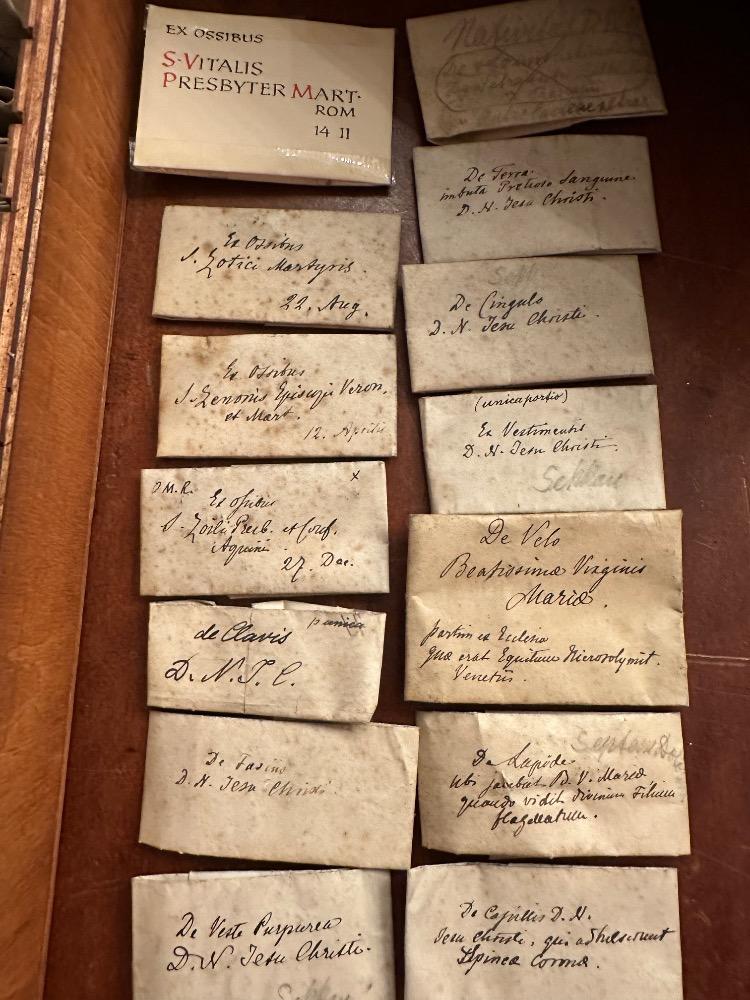 EX OSSIBUS
S·VITALIS
PRESBYTER MART·
ROM
14 11
Ex Ossibus
S. Zotici Martyris.
22. Aug.
Ex Ossibus
S. Zenonis Episcopi Veron.
et Mart.
12. Aprilis
M. R. x
Ex Ossibus
S. Zoili Presb. et Conf.
Aquini
27. Dec.
unica
de Clavis
D. N. J. C.
De
D. N. Jesu Christi
De Veste Purpurea
D. N. Jesu Christi.
De Terra
imbuta Pretioso Sanguine
D. N. Jesu Christi.
De Cingulo
D. N. Jesu Christi.
(unica portio)
Ex Vestimentis
D. N. Jesu Christi.
De Velo
Beatissimæ Virginis
Mariæ.
partim ex Ecclesia
quæ erat Equitum Hierosolymit.
Venetiis.
De Lapide
ubi jacebat B. V. Maria
quando vidit divinum Filium
flagellatum.
De Capillis D. N.
Jesu Christi, qui adhæserunt
Spineæ Coronæ.